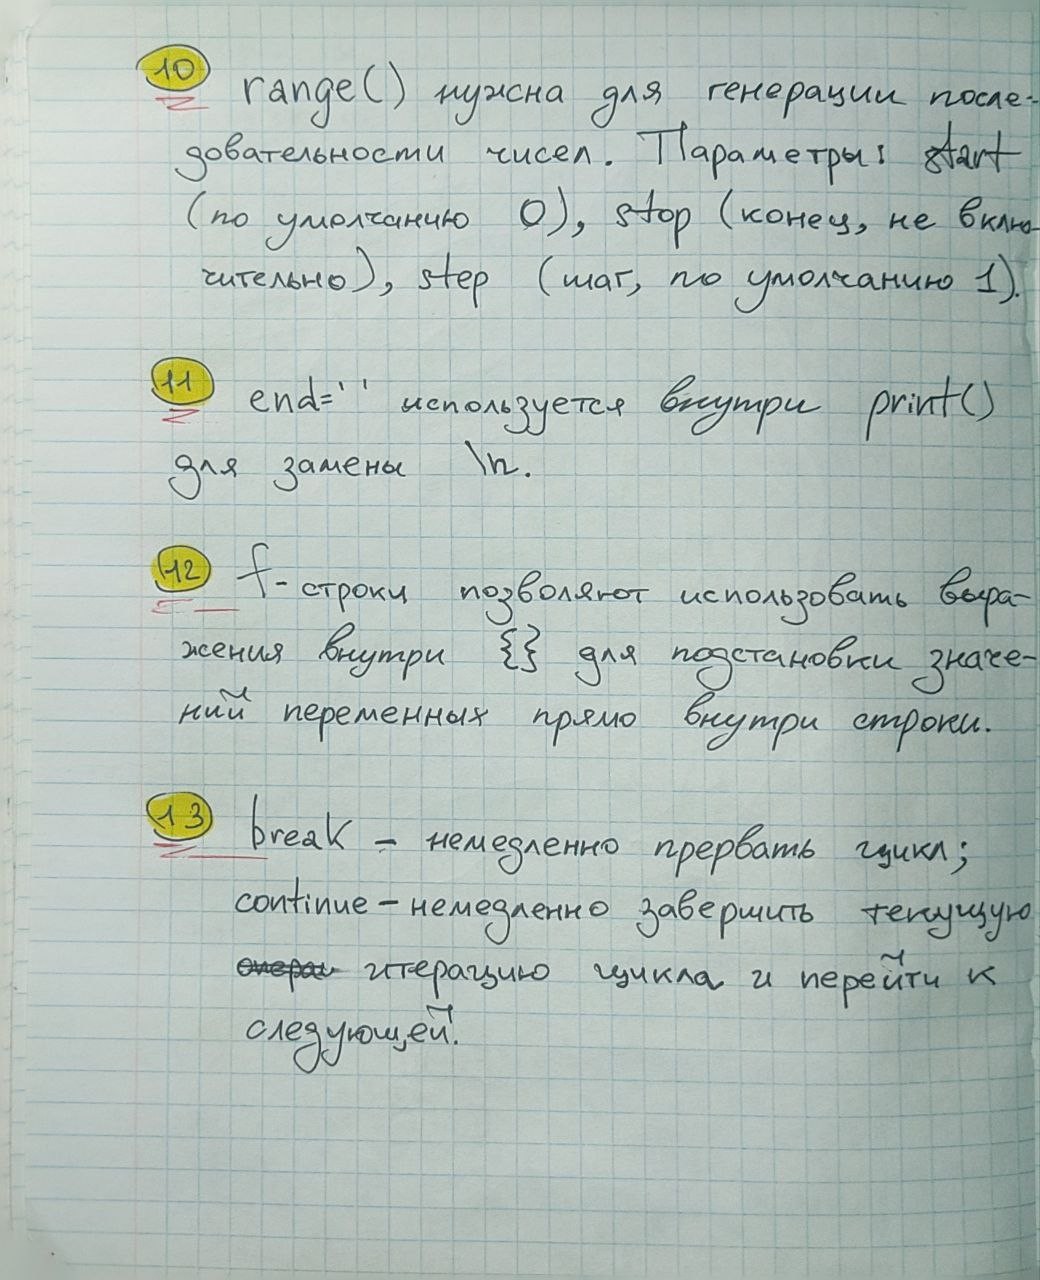 10 range() нужна для генерации после-
довательности чисел. Параметры: start
(по умолчанию 0), stop (конец, не вклю-
чительно), step (шаг, по умолчанию 1).
11 end=' ' используется внутри print()
для замены \n.
12 f-строки позволяют использовать выра-
жения внутри {} для подстановки значе-
ний переменных прямо внутри строки.
13 break - немедленно прервать цикл;
continue - немедленно завершить текущую
итерацию цикла и перейти к
следующей.